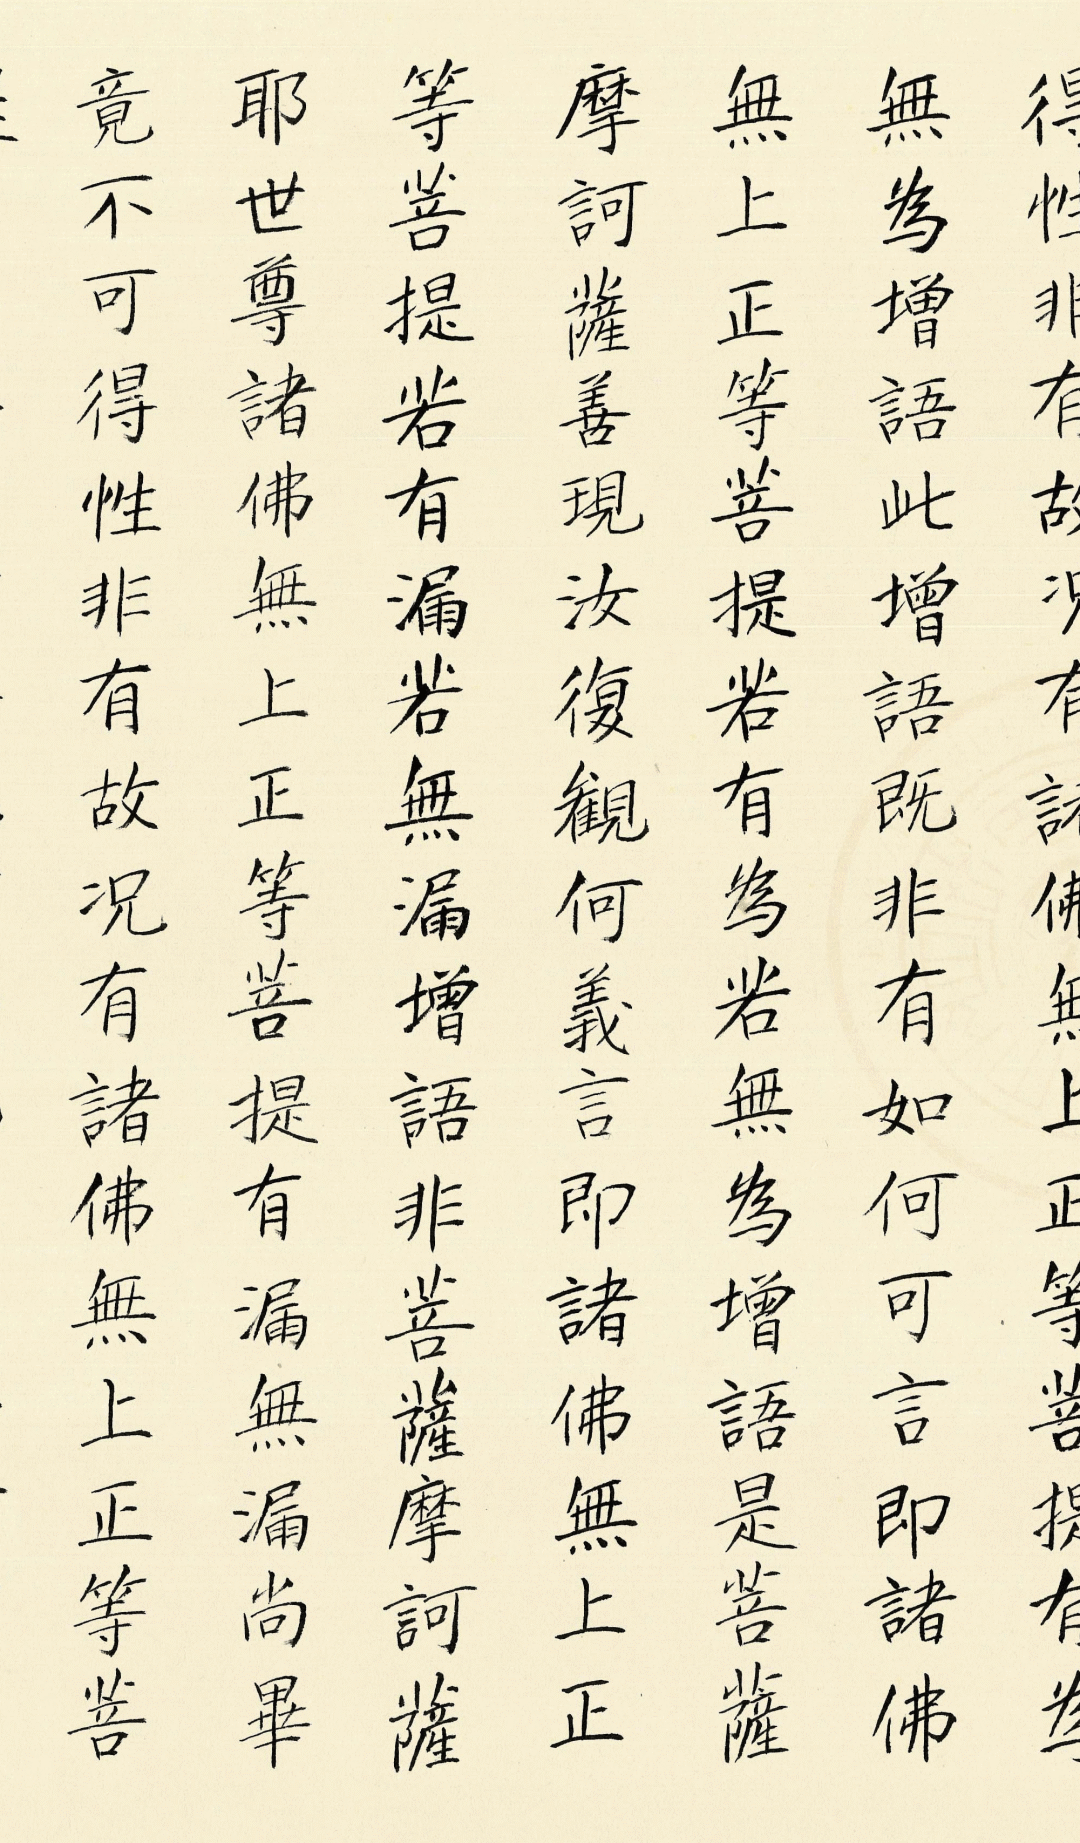 得性非有故况有諸佛無上正等菩提有為
無為增語此增語既非有如何可言即諸佛
無上正等菩提若有為若無為增語是菩薩
摩訶薩善現汝復觀何義言即諸佛無上正
等菩提若有漏若無漏增語非菩薩摩訶薩
耶世尊諸佛無上正等菩提有漏無漏尚畢
竟不可得性非有故况有諸佛無上正等菩